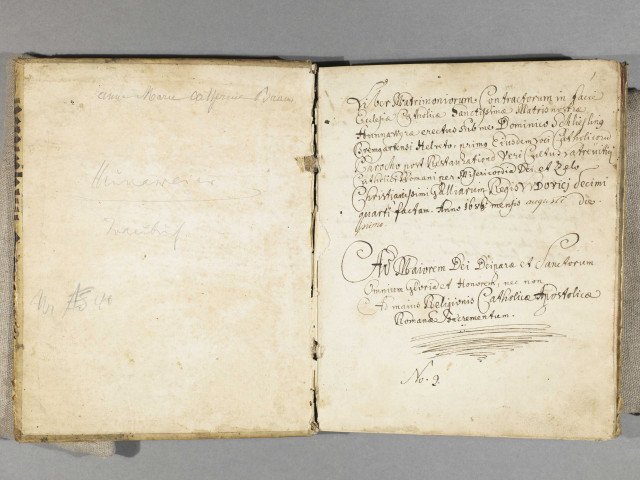 Anna Maria Catherina Baum
Hunnaweier
No. 2.
1
Liber Matrimoniorum Contractorum in facie
Ecclesiæ Catholicæ Sanctissimæ Matris nostræ
Hunnawyræ erectus sub me Dominico Schilling
Bremgartensi Helveto, primo Eiusdem loci Catholicorum
Parocho post Restaurationem Veri Cultus
Catholici Romani per Misericordia Dei et Zelo
Christianissimi Galliarum Regis Ludovici decimi
quarti factam. Anno mensis augusti die
Ad Maiorem Dei Deiparæ et Sanctorum
Omnium Gloria et Honorem, nec non
Ad maius Religionis Catholicæ Apostolicæ
Romanæ Incrementum.
No. 2.